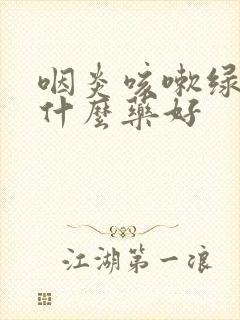 咽炎咳嗽绿
什麼藥好
江湖第一浪